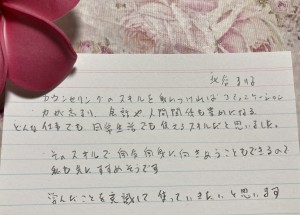 カウンセリングのスキルを身につければコミュニケーション
力が高まり、会話や人間関係も豊かになる
どんな仕事でも日常生活でも使えるスキルだと思いました。
・そのスキルで自分自身に向きあうこともできるので
私も人にすすめそうです
学んだことを意識して使っていきたいと思います